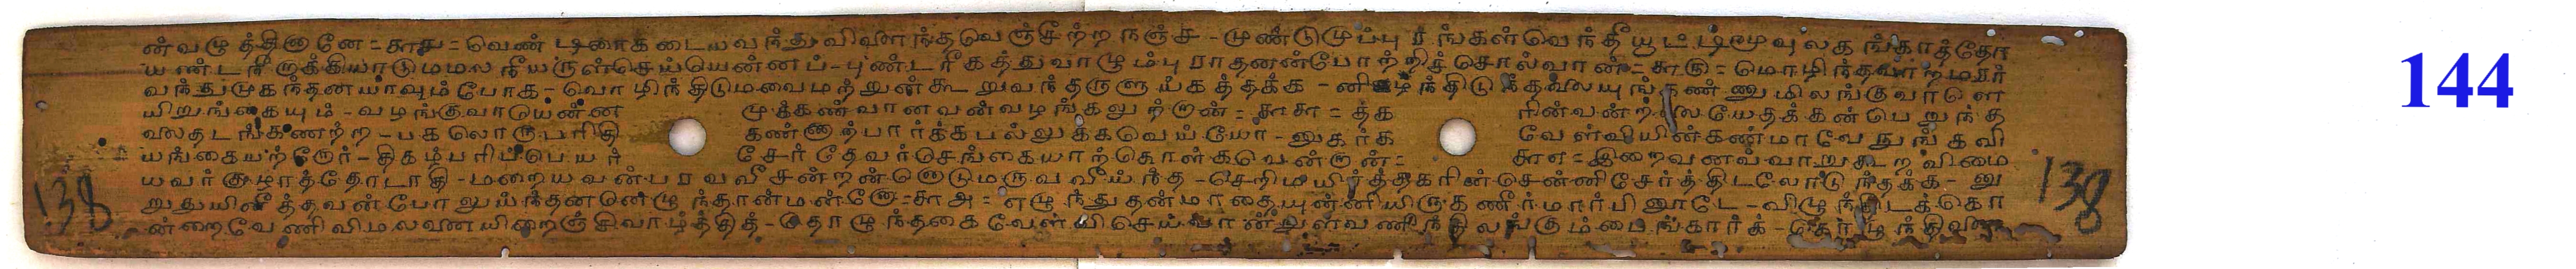 ன்வழுத்தினானே = ௬௪ = வெண் டிசைகடையவந்துவிளைந்தவெஞ்சீற்ற நஞ்ச - முண்டுமுப்பு ரங்கள்வெந்தீயூட்டிமூவுலகங்காத்தோ
யண்டரீருத்தியாடுமமல நீயருள்செய்யென்னப் - புண்டரீகத்துவாழும்பு ராதனன்போற்றிச்சொல்வான் = ௬௫ = மொழிந்தவாறமரர்
வந்துமுகந்தனயாவும்போக - வொழிந்திடுமவைமற்றுன்கூ றுவந்தருளுய்கத்தக்க - னிழந்திடு சீதவலையுங்கண்ணுமிலங்குவா ளெ
யிறுங்கையும் - வழங்குவாயென்ன முக்கண்வானவன்வழங்கலுற்றான் = ௬௬ = த்க ரின்வன்றலையேதக்கன்பெறுந்த
வலதடங்கணற்ற - பகலொருபரிதி கண்ணாற்பார்க்கபல்லுக்கவெய்யோ - னுகர்க வேள்வியின்கண்மாவே நுங்கவி
யங்கையற்றோர் - திகழ்பரிப்பெயர் சேர்தேவர்செங்கையாற்கொள்கவென்றான் = ௬௭ = இறைவனவ்வாறுகூறவிமை
யவர்குழாத்தோடாதி - மறையவன்பரவவீசன்றன்னொடுமருவவீய்ந்த - செறிமயிர்த்தகரின்சென்னிசேர்த்திடலோடுந்தக்க - னு
றுதுயினீத்தவன்போலுய்ந்தனனெழுந்தான்மன்னோ = ௬௮ = எழுந்துதன்மாதையுன்னியிருகணீர்மார்பினூடே - விழுந்திடக்கொ
ன்றைவேணிவிமலவனையிறைஞ்சிவாழ்த்தித் - தொழுந்தகைவேள்வி செய்வான்